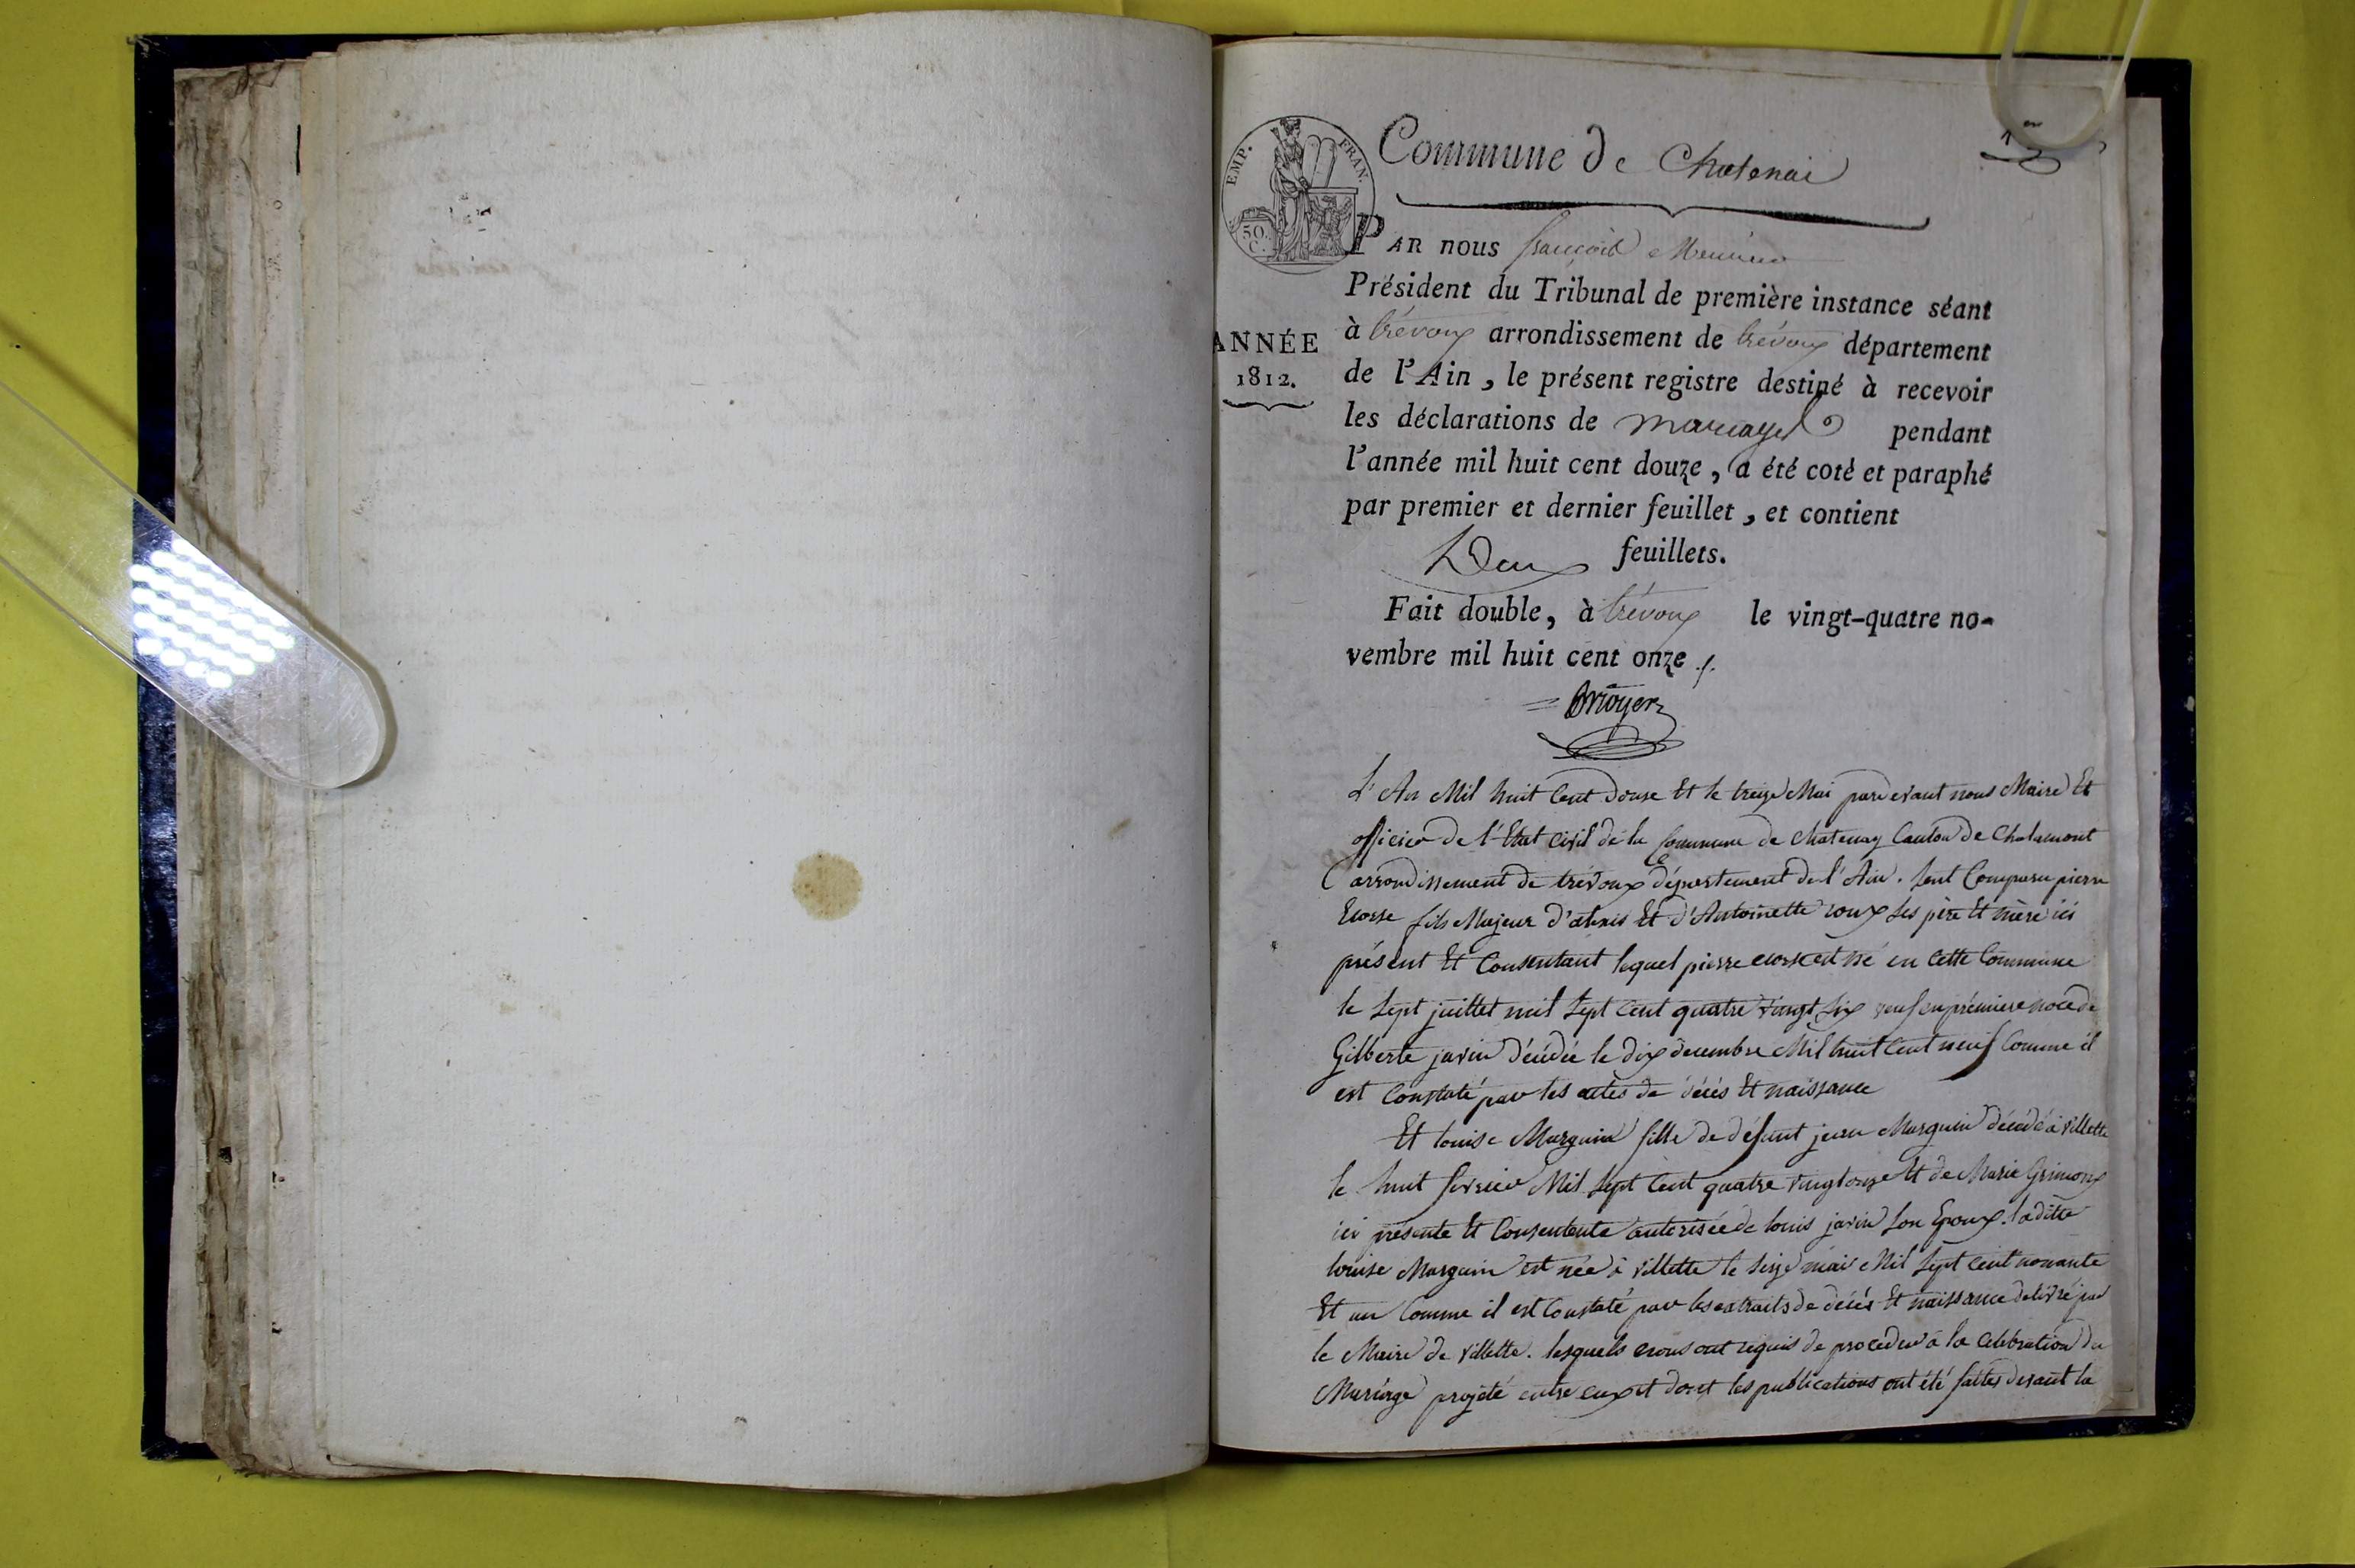 EMP. FRAN.
50. C.
1er
Commune de Chatenai
PAR nous françois
Président du Tribunal de première instance séant
à trévoux arrondissement de trévoux département
ANNÉE
1812.
de l'Ain, le présent registre destiné à recevoir
les déclarations de mariages pendant
l'année mil huit cent douze, a été coté et paraphé
par premier et dernier feuillet, et contient
Deux feuillets.
Fait double, à trévoux le vingt-quatre no-
vembre mil huit cent onze ./.
L'An Mil huit Cent Douse Et le treize Mai pardevant nous Maire Et
officier de l'Etat civil de la Commune de Chatenay Canton de Chalamont
arrondissement de trévoux département de l'Ain. sont Comparu pierre
Ecosse fils Majeur d'alexis Et d'Antoinette roux ses père Et mère ici
présent Et Consentant lequel pierre ecosse est né en Cette Commune
le sept juillet mil sept Cent quatre vingt six veuf en première noce de
Gilberte javin décédée le dix decembre Mil huit Cent neuf Comme il
est Constaté par les actes de décés Et naissance
Et louise Marguin fille de défunt jean Marguin décédé à villette
le huit fevrier Mil sept Cent quatre vingt onze Et de Marie Grimoux
ici présente Et Consentente autorisée de louis javin son Epoux. laditte
louise Marguin est née à villette le seize mai Mil sept cent nonante
Et un Comme il est Constaté par les extraits de décés Et naissance delivré par
le Maire de villette. lesquels nous ont requis de proceder à la Célébration du
Mariage projeté entre eux et dont les publications ont été faites devant la